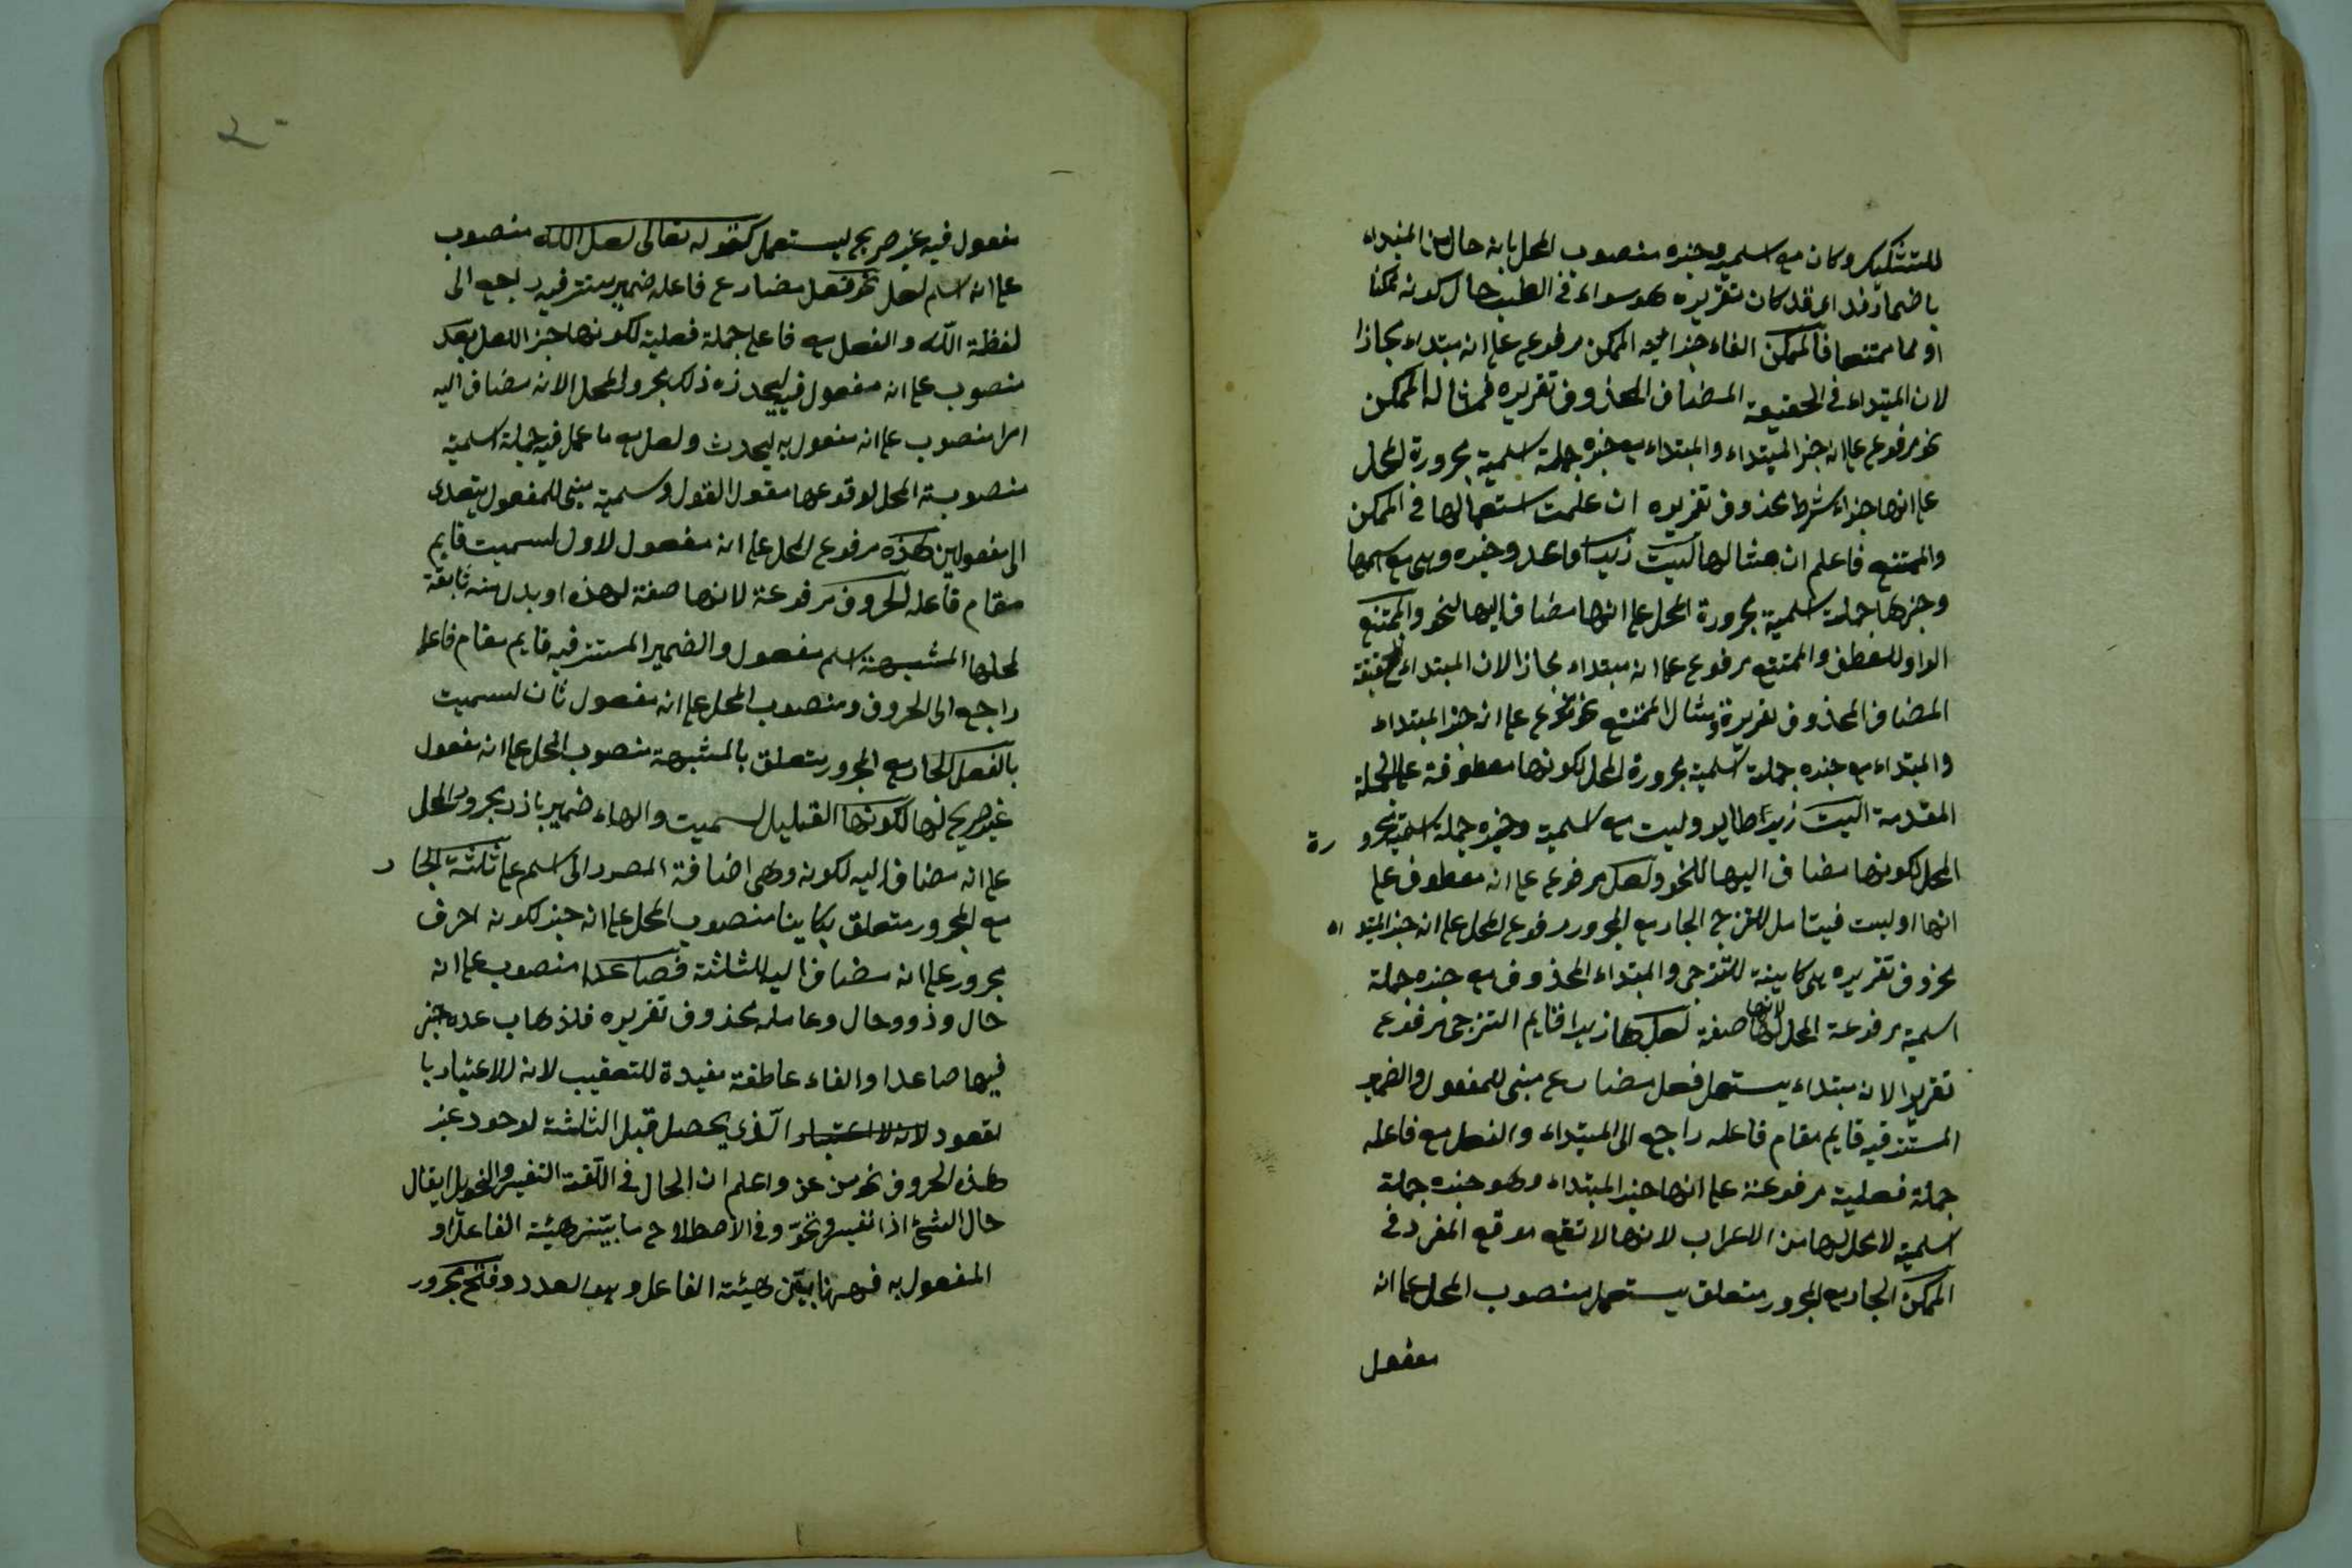 للتشكيك وكان مع اسمه وخبره منصوب المحل بانه حال من المبتداء
باضمار قد اى قد كان تقديره هو سواء فى الطلب حال كونه ممكنا
او مما ممتنعا فالممكن الفاء جزائية الممكن مرفوع على انه مبتداء مجازا
لان المبتداء فى الحقيقة المضاف المحذوف تقديره فمثاله الممكن
نحو مرفوع على انه خبر المبتداء والمبتداء مع خبره جملة اسمية مجرورة المحل
على انها جزاء شرط محذوف تقديره ان علمت استعمالها فى الممكن
والممتنع فاعلم ان مثالها ليت زيدا قاعد وخبره وهى مع اسمها
وخبرها جملة اسمية مجرورة المحل على انها مضاف اليها لنحو والممتنع
الواو للعطف والممتنع مرفوع على انه مبتداء مجازا لان المبتداء فى الحقيقة
المضاف المحذوف تقديره ومثال الممتنع نحو مرفوع على انه خبر المبتداء
والمبتداء مع خبره جملة اسمية مجرورة المحل لكونها معطوفة على الجملة
المقدمة ليت زيدا طاير وليت مع اسمه وخبره جملة اسمية مجرورة
المحل لكونها مضاف اليها للنحو ولعل مرفوع على انه معطوف على
انها او ليت فيتامل للترجى الجار مع المجرور مرفوع المحل على انه خبر المبتداء
محذوف تقديره هى كاينة للترجى والمبتداء المحذوف مع خبره جملة
اسمية مرفوعة المحل لانها صفة لعل ها زيدا قايم الترجى مرفوع
تقديرا لانه مبتداء يستعمل فعل مضارع مبنى للمفعول والضمير
المستتر فيه قايم مقام فاعله راجع الى المبتداء والفعل مع فاعله
جملة فعلية مرفوعة على انها خبر المبتداء وهو خبره جملة
اسمية لا محل لها من الاعراب لانها لا تقع موقع المفرد فى
الممكن الجار مع المجرور متعلق يستعمل منصوب المحل على انه
مفعول
مفعول فيه غير صريح ليستعمل كقوله تعالى لعل الله منصوب
على انه اسم لعل نحو فعل مضارع فاعله ضمير مستتر فيه راجع الى
لفظة الله والفعل مع فاعله جملة فعلية لكونها خبر اللعل بعد
منصوب على انه مفعول فيه ليحدث ذلك مجرور المحل لانه مضاف اليه
امرا منصوب على انه مفعول به ليحدث ولعل مع ما عمل فيه جملة اسمية
منصوبة المحل لوقوعها مقول القول وسميت مبنى للمفعول يتعدى
الى مفعولين هذه مرفوع المحل على انه مفعول لاول لسميت قايم
مقام فاعله الحروف مرفوعة لانها صفة لهذه او بدل منه تابعة
لمحلها المشبهة اسم مفعول والضمير المستتر فيه قايم مقام فاعله
راجع الى الحروف ومنصوب المحل على انه مفعول ثان لسميت
بالفعل الجار مع المجرور متعلق بالمشبهة منصوب المحل على انه مفعول
غير صريح لها لكونها القليل لسميت والهاء ضمير بارز مجرور المحل
على انه مضاف اليه لكونه وهى اضافة المصدر الى اسم على ثلثة الجار
مع المجرور متعلق بكاينا منصوب المحل على انه خبر لكونه احرف
مجرور على انه مضاف اليه للثلثة فصاعدا منصوب على انه
حال وذو وحال وعامله محذوف تقديره فلذهاب عدد خبر
فيها صاعدا والفاء عاطفة مفيدة للتعقيب لانه للاعتبار با
لقعود لانه لا اعتبار الذى يحصل قبل الثلثة لوجود غير
هذه الحروف نحو من عن واعلم ان الحال فى اللغة التغير والتحويل يقال
حال الشئ اذا تغير وتحول وفى الاصطلاح ما يبين هيئة الفاعل او
المفعول به فههنا يبين هيئة الفاعل وهو العدد وفتح مجرور